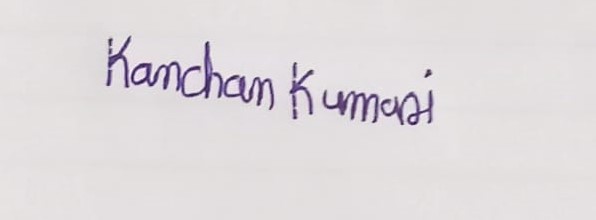 Kanchan Kumari